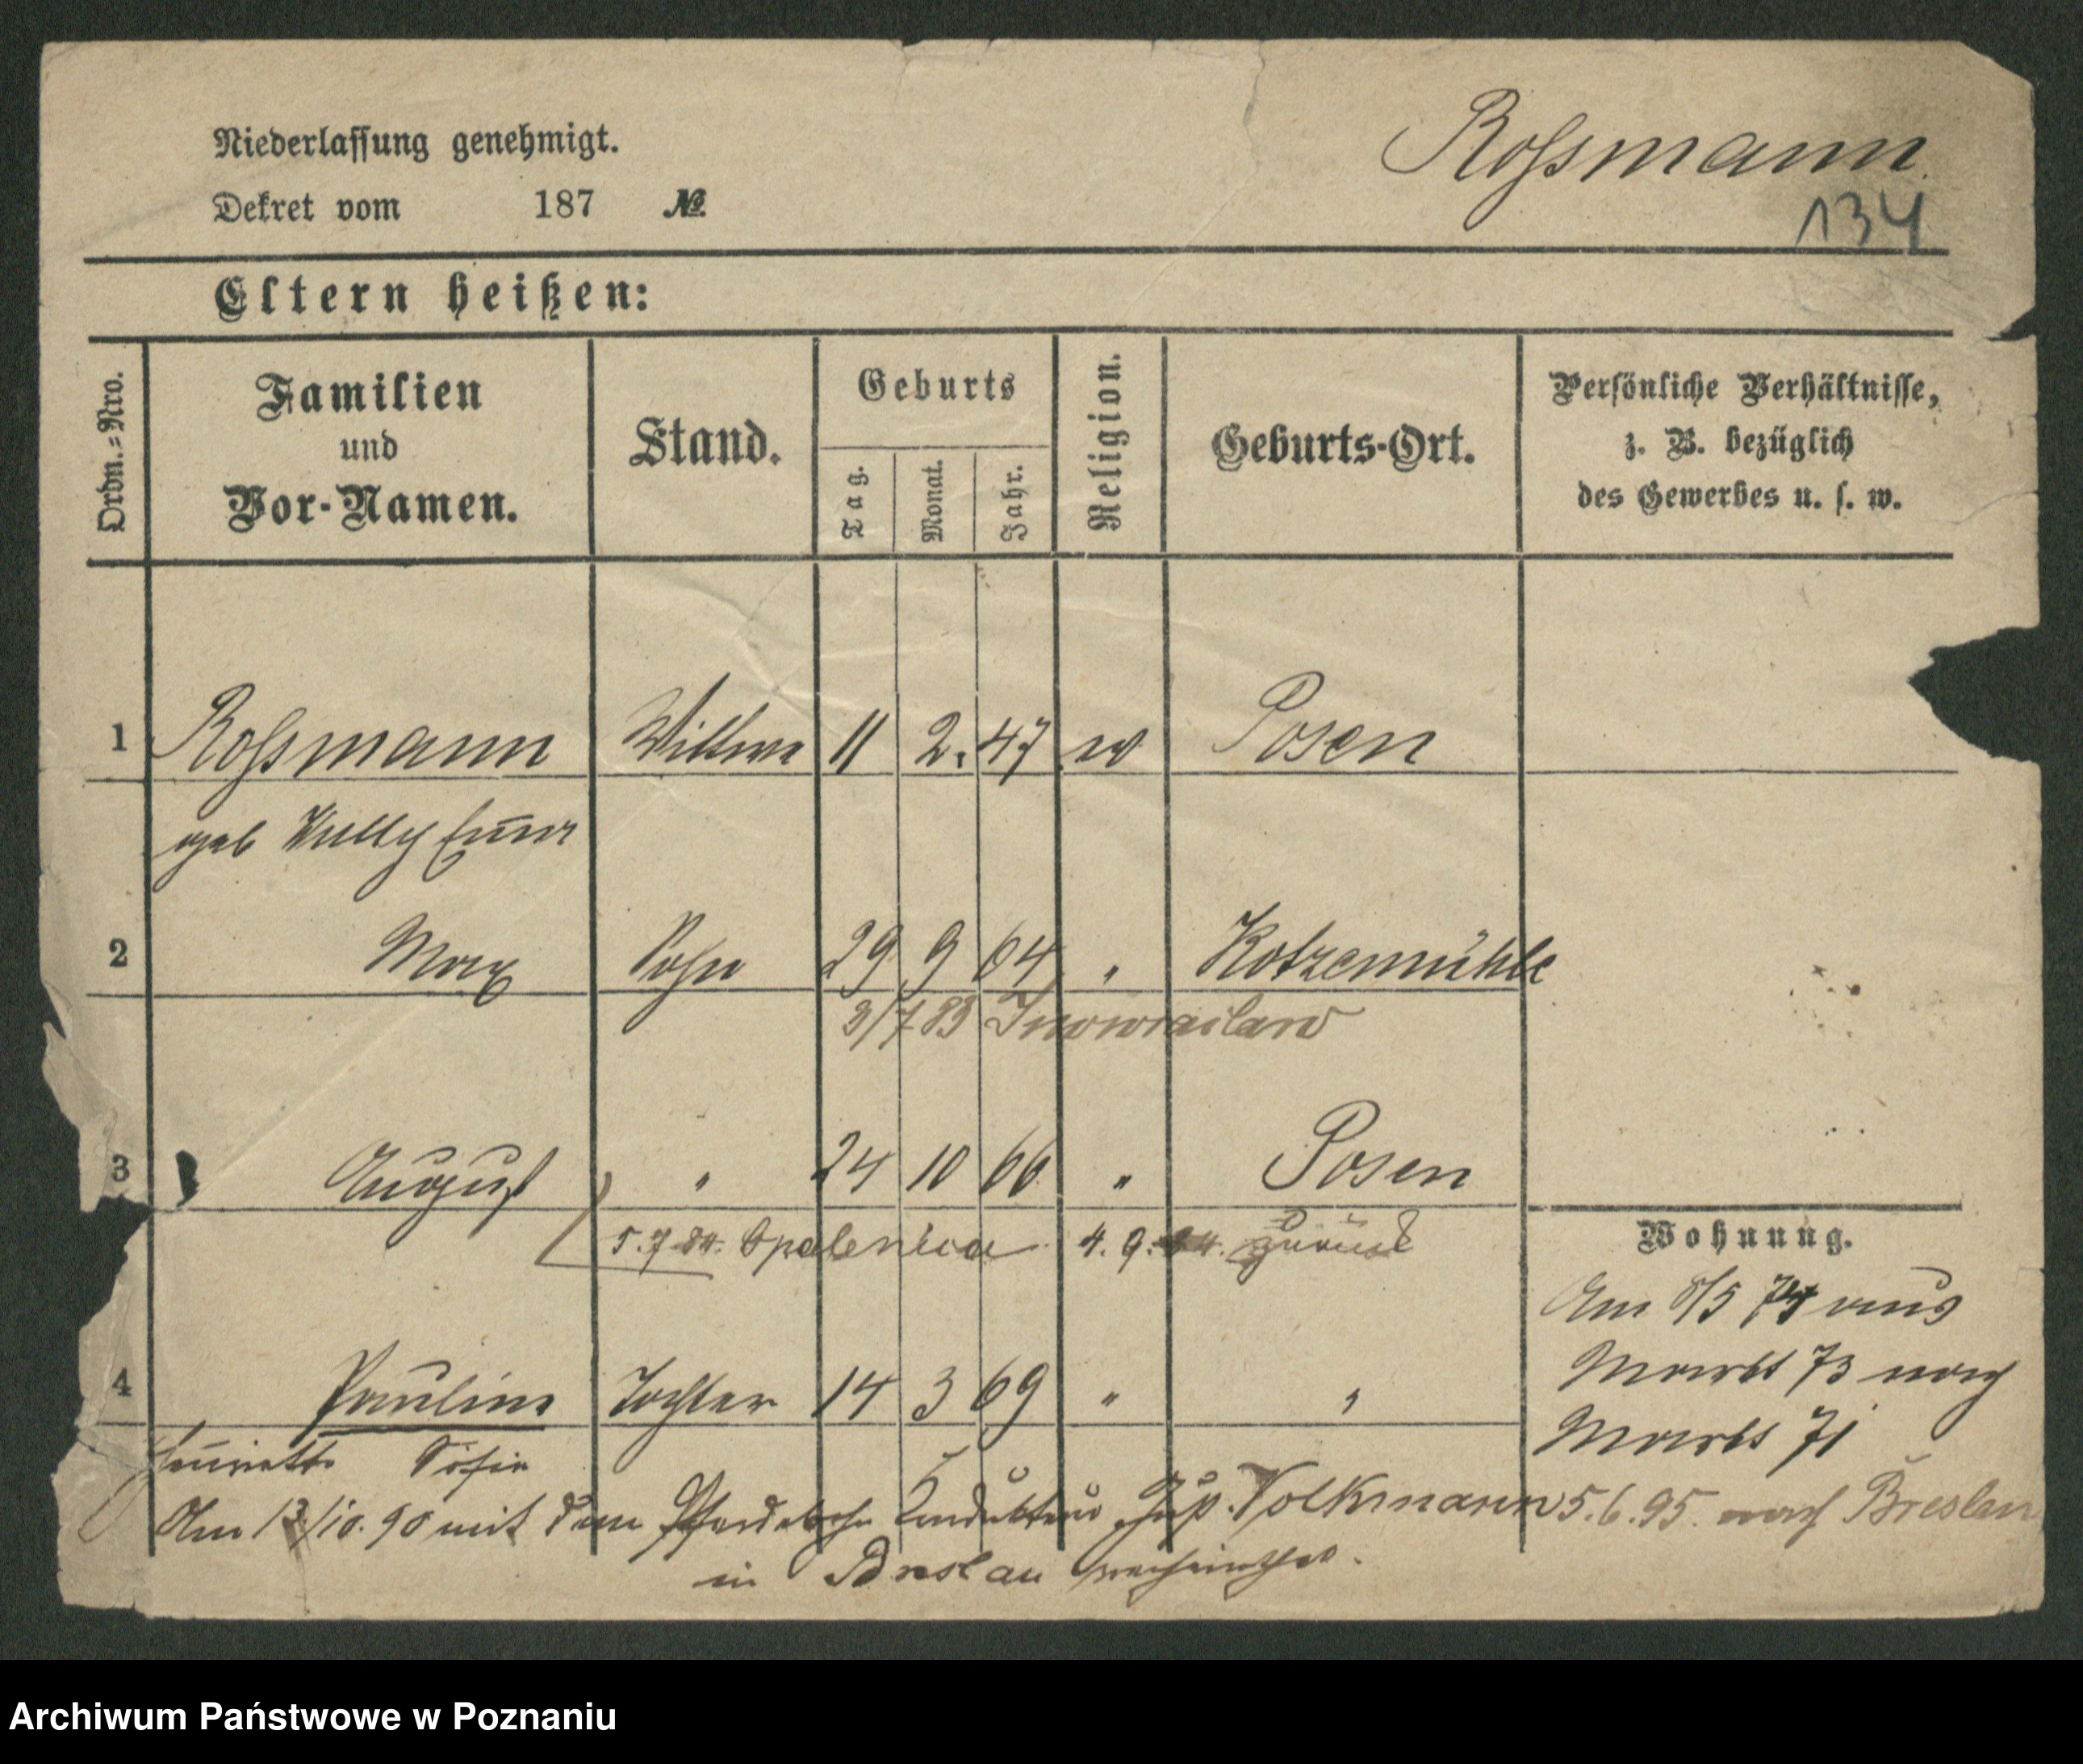 Niederlassung genehmigt.
Rossmann
Dekret vom 187 №
134
Eltern heißen:
Ordn.=Nro.
Familien
und
Vor-Namen.
Stand.
Geburts
Tag.
Monat.
Jahr.
Religion.
Geburts-Ort.
Persönliche Verhältnisse,
z. B. bezüglich
des Gewerbes u. s. w.
1 Rossmann Wittwe 11 2. 47 ev Posen
geb
2 Max Sohn 29 9 64 " Kotzemühle
3/7 83 Inowraclaw
3 August " 24 10 66 " Posen
5.7.84. Opalenica 4.9.84. zurück
Wohnung.
Am 8/5 74 aus
4 Pauline Tochter 14 3 69 " "
Markt 73 nach
Markt 71
Henriette Sofie
Am 13/10.90 mit dem Pferdebahn Kondukteur Volkmann 5.6.95. nach Breslau
in Breslau verheirathet.
Archiwum Państwowe w Poznaniu